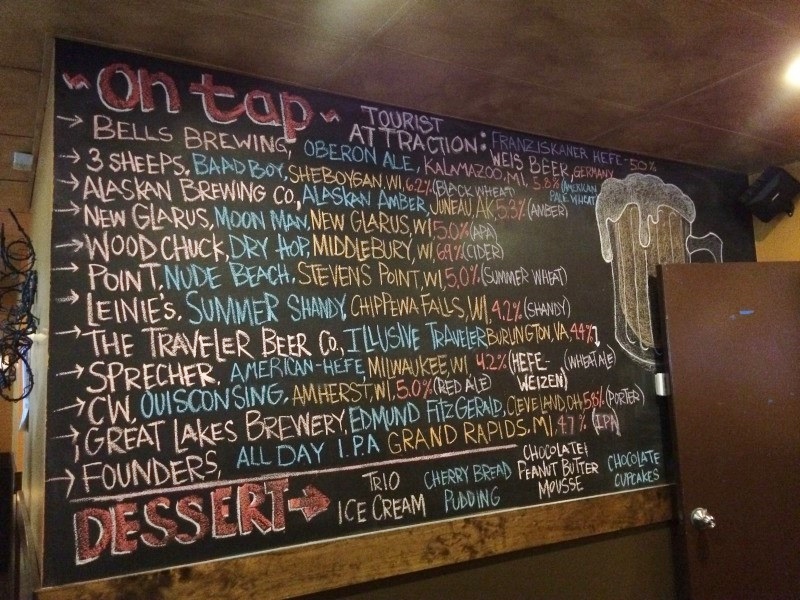 ~ON TAP~
TOURIST ATTRACTION: FRANZISKANER HEFE-5.0%
WEIS BEER, GERMANY
→ BELLS BREWING, OBERON ALE, KALAMAZOO, MI, 5.8% (AMERICAN PALE WHEAT)
→ 3 SHEEPS, BAAD BOY, SHEBOYGAN, WI, 6.2% (BLACK WHEAT)
→ ALASKAN BREWING CO, ALASKAN AMBER, JUNEAU, AK 5.3% (AMBER)
→ NEW GLARUS, MOON MAN, NEW GLARUS, WI 5.0% (APA)
→ WOODCHUCK, DRY HOP, MIDDLEBURY, WI, 6.9% (CIDER)
→ POINT, NUDE BEACH, STEVENS POINT, WI, 5.0% (SUMMER WHEAT)
→ LEINIE'S, SUMMER SHANDY, CHIPPEWA FALLS, WI, 4.2% (SHANDY)
→ THE TRAVELER BEER CO., ILLUSIVE TRAVELER BURLINGTON, VA, 4.4% (WHEAT ALE)
→ SPRECHER, AMERICAN-HEFE, MILWAUKEE, WI, 4.2% (HEFE-WEIZEN)
→ CW, OUISCONSING, AMHERST, WI, 5.0% (RED ALE)
→ GREAT LAKES BREWERY, EDMUND FITZGERALD, CLEVELAND OH, 5.8% (PORTER)
→ FOUNDERS, ALL DAY I.P.A GRAND RAPIDS, MI, 4.7% (IPA)
DESSERT→ TRIO ICE CREAM
CHERRY BREAD PUDDING
CHOCOLATE PEANUT BUTTER MOUSSE
CHOCOLATE CUPCAKES